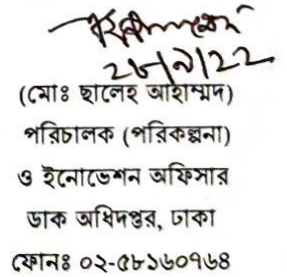 ২৮/৯/২২
(মোঃ ছালেহ আহাম্মদ)
পরিচালক (পরিকল্পনা)
ও ইনোভেশন অফিসার
ডাক অধিদপ্তর, ঢাকা
ফোনঃ ০২-৫৮১৬০৭৬৪